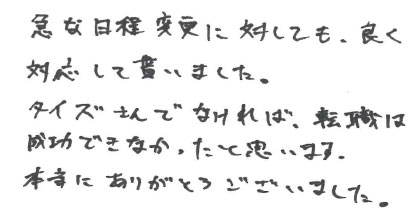 急な日程変更に対しても、良く
対応して貰いました。
タイズさんでなければ、転職は
成功できなかったと思います。
本当にありがとうございました。